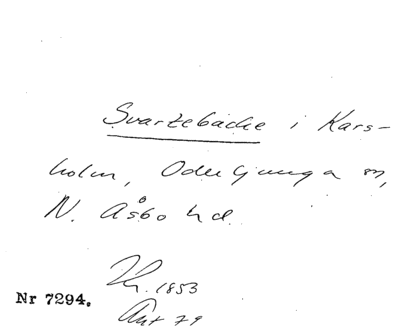 Svartebäcke i Kars-
holm, Oderljunga sn,
N. Åsbo hd.
1853
Nr 7294.
Ant 79